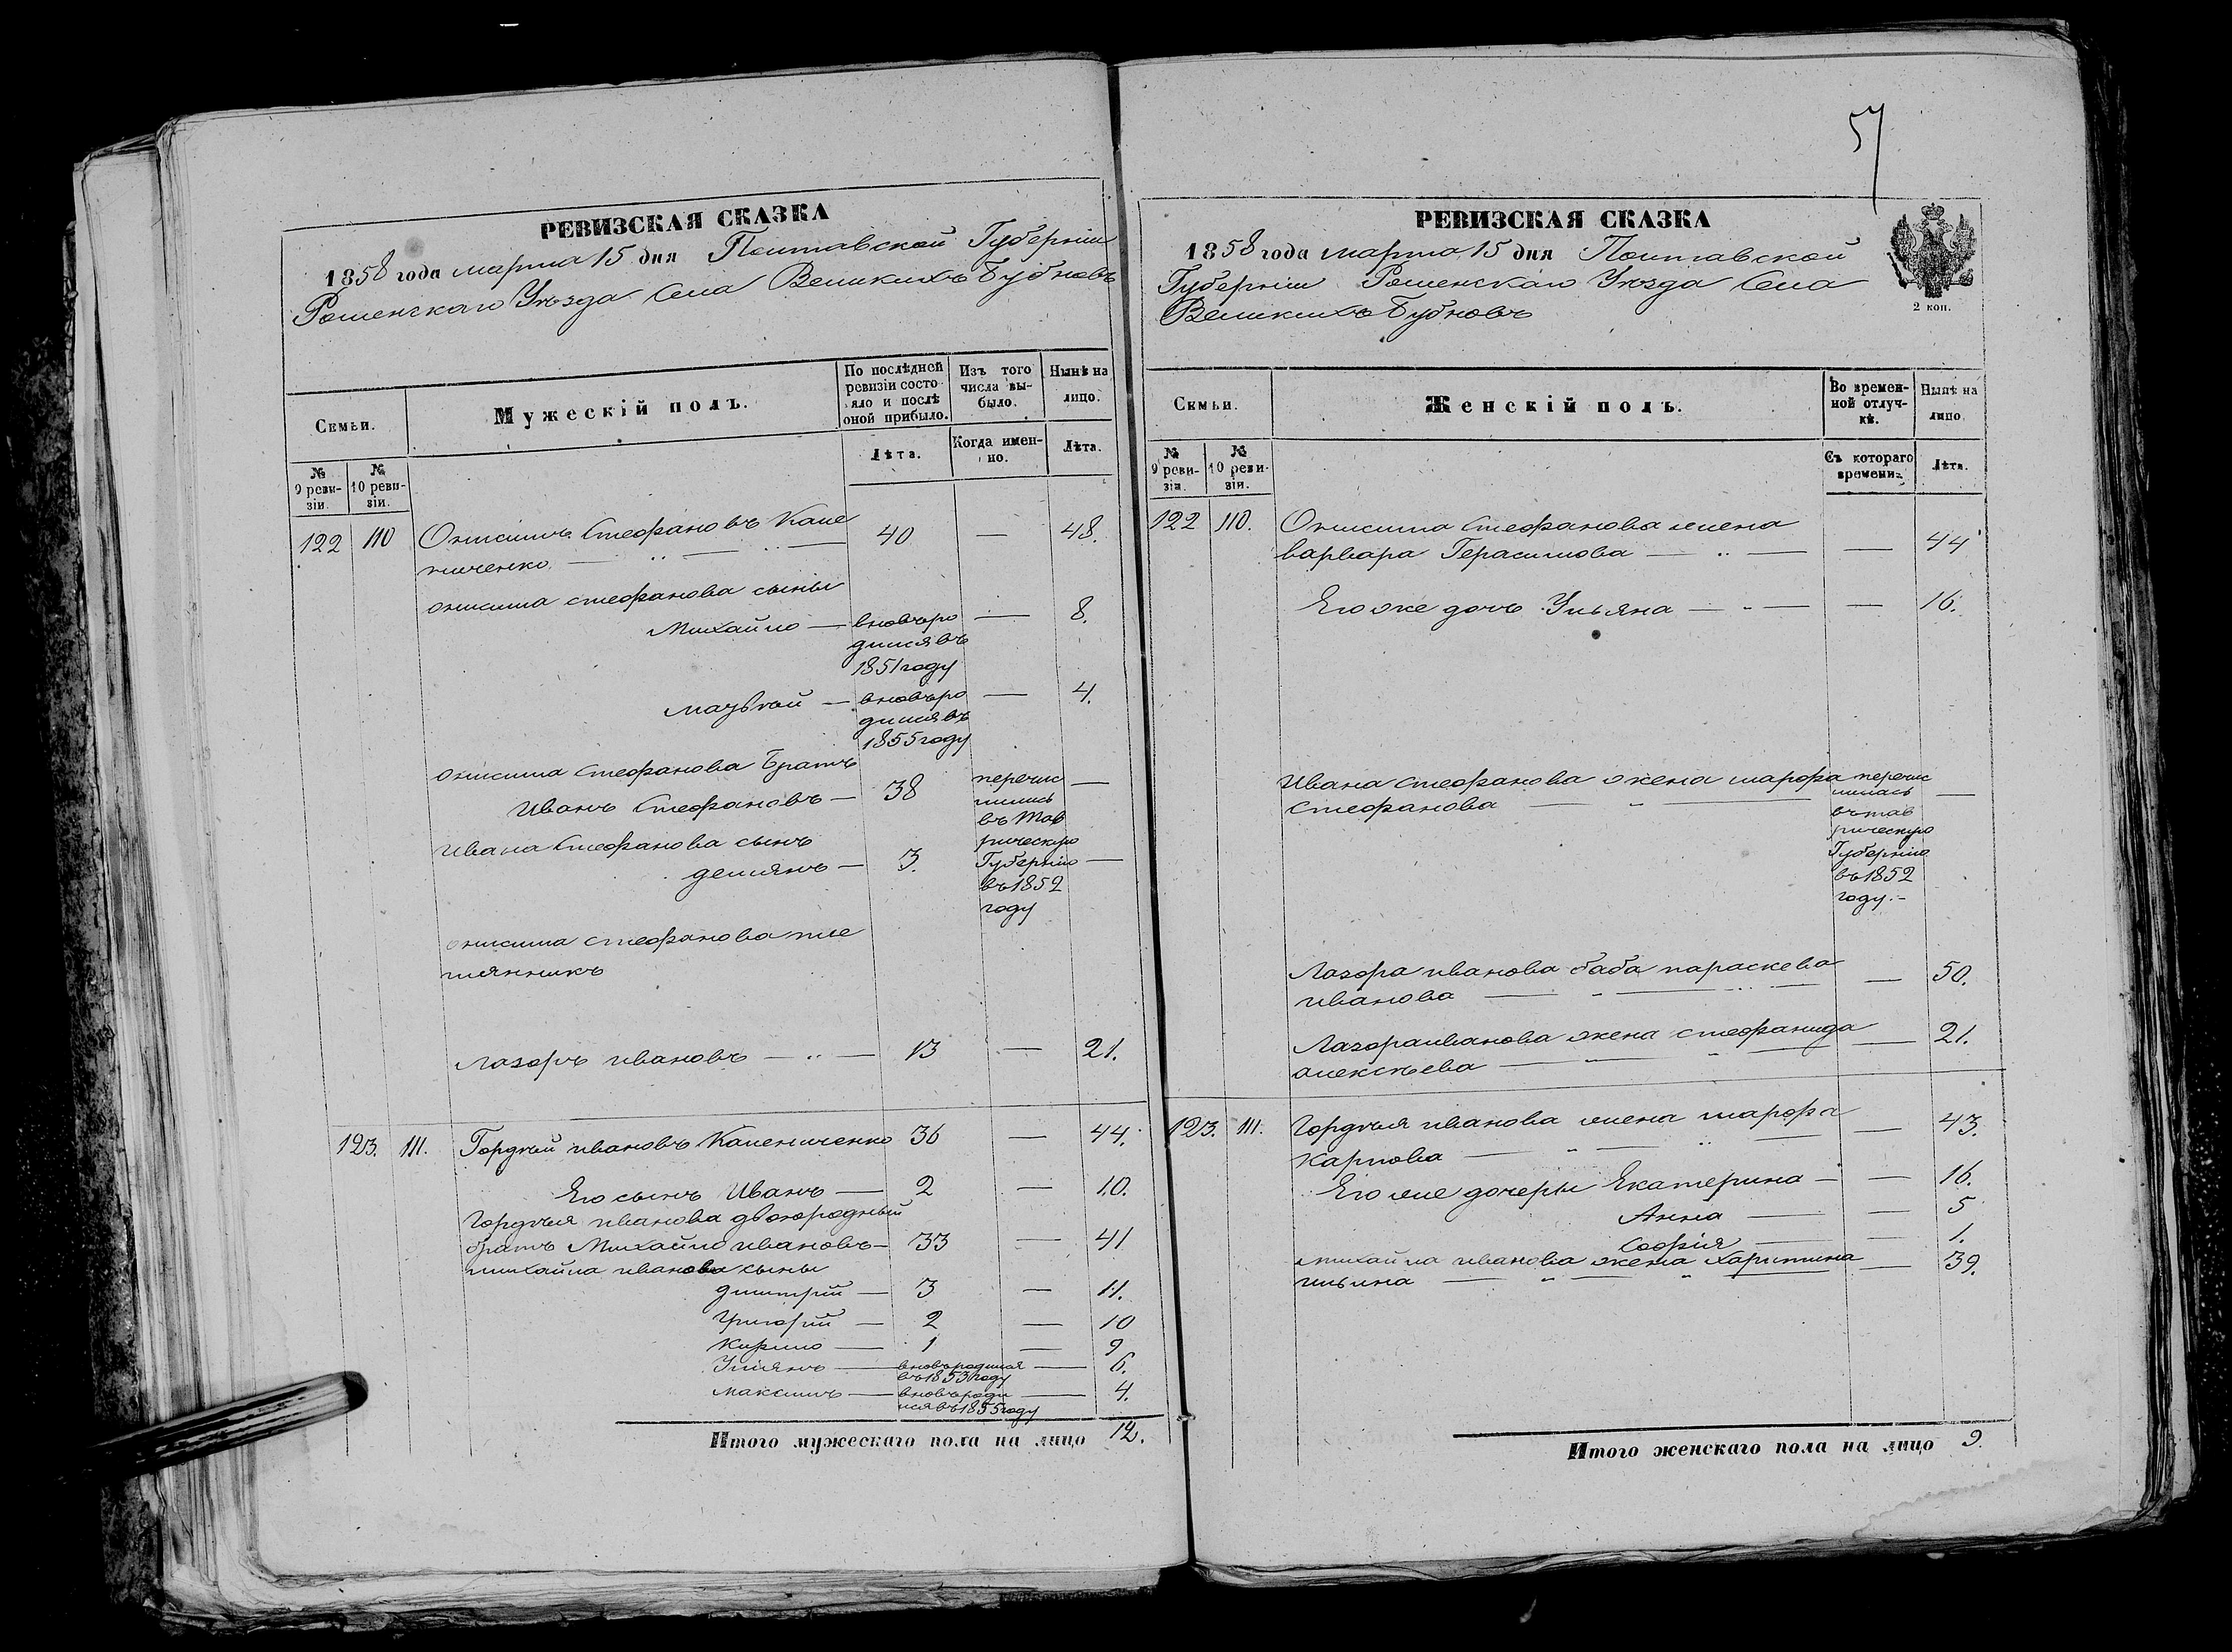 57
РЕВИЗСКАЯ СКАЗКА
1858 года марта 15 дня Полтавской Губерніи
Роменскаго Уѣзда Села Великихъ Бубновъ
Семьи.
Мужескій полъ.
По послѣдней ревизіи состояло и послѣ оной прибыло.
Изъ того числа выбыло.
Нынѣ на лицо.
№ 9 ревизіи.
№ 10 ревизіи.
Лѣта.
Когда именно.
Лѣта.
122 110 Онисимъ Стефановъ Капе 40 — 48.
ниченко
онисима стефанова сыны
Михайло — вновьро — 8.
дилсявъ
1851 году
— вновьро — 4.
дилсявъ
1855 году
онисима стефанова Братъ
Иванъ Стефановъ — 38 перечис —
лились
въ Тав
Ивана Стефанова сынъ рическую
демянъ — 3. Губернію —
въ 1852
году
онисима стефанова пле
мянникъ
Лазоръ ивановъ — 13 — 21.
123. 111. Гордѣй ивановъ Капениченко 36 — 44.
Его сынъ Иванъ — 2 — 10.
Гордѣя иванова двоюродный
братъ Михайло ивановъ — 33 — 41
михайла иванова сыны
дмитрій — 3 — 11.
Григорій — 2 — 10
Кирило — 1 — 9
Уліянъ — вновьродился — 6.
въ 1853 году
Максимъ — вновьроди — 4.
лсявъ 1855 году
Итого мужескаго пола на лицо 12.
РЕВИЗСКАЯ СКАЗКА
1858 года марта 15 дня Полтавской
Губерніи Роменскаго Уѣзда Села
Великихъ Бубновъ
2 коп.
Семьи.
Женскій полъ.
Во временной отлучкѣ.
Нынѣ на лицо.
№ 9 ревизіи.
№ 10 ревизіи.
Съ котораго времени.
Лѣта.
122 110. Онисима Стефанова жена
варвара Герасимова — — 44
Его же дочь Ульяна — — 16.
Ивана стефанова жена марфа перечис
стефанова — лилась —
въ тав
рическую
Губернію
въ 1852
году.
Лазора иванова баба параскева
иванова — — 50.
Лазора иванова жена стефанида — 21.
алексѣева —
123. 111. Гордѣя иванова жена марфа — 43.
карпова —
Его же дочеры Екатерина — — 16.
Анна — — 5
Софія — — 1.
михайла иванова жена Харитина — 39.
ильина —
Итого женскаго пола на лицо 9.